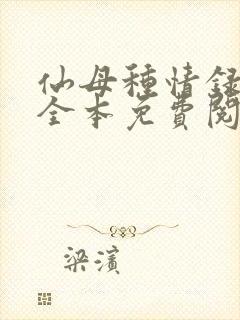 仙母種情録
全本免費閱
梁濱